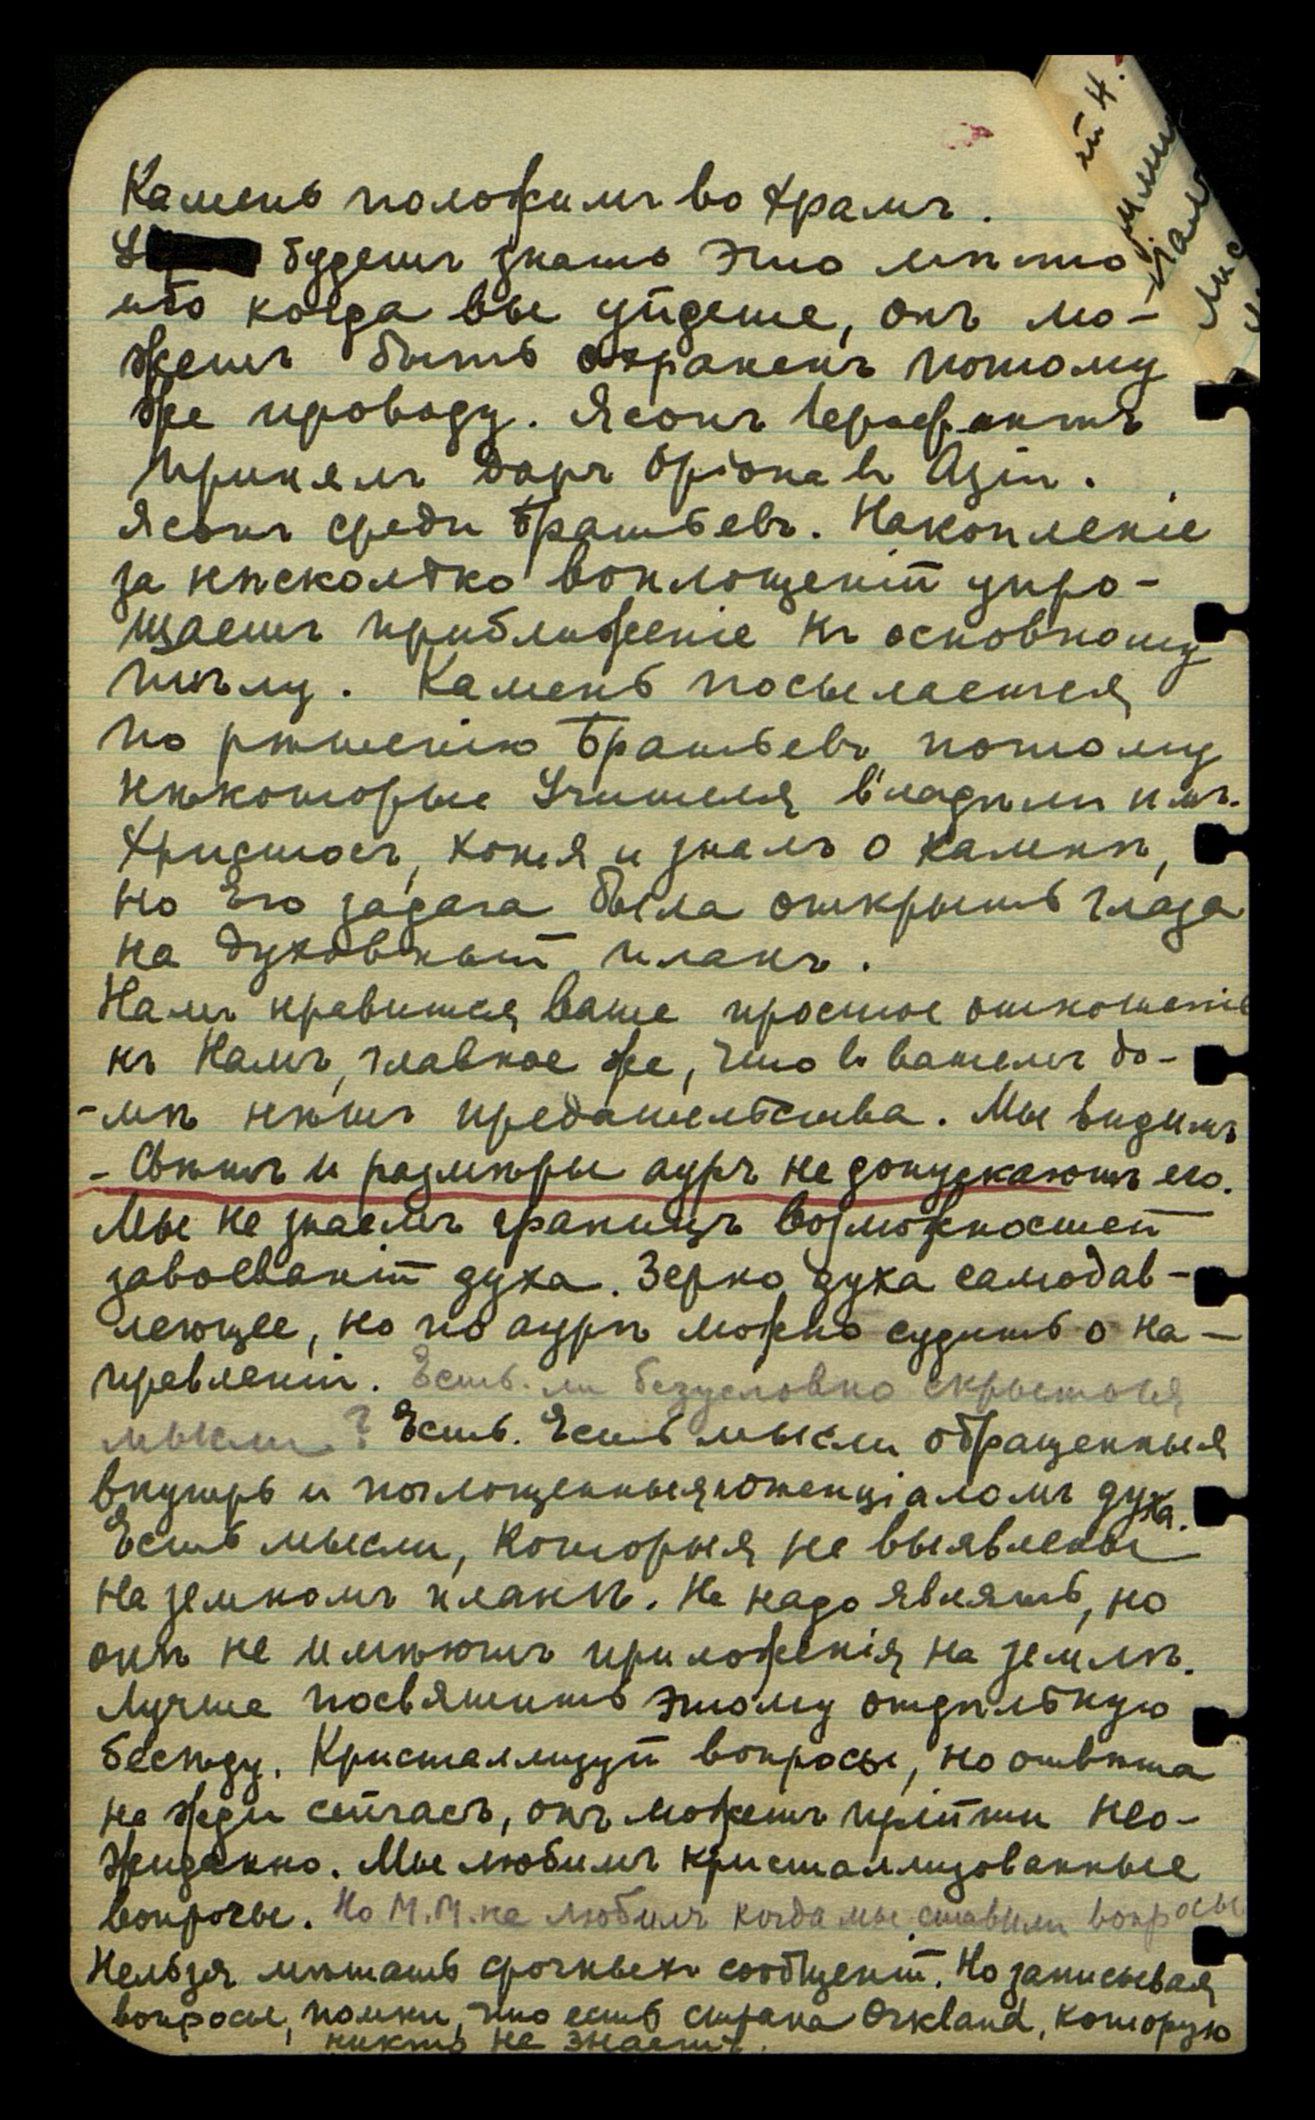 Камень положимъ во Храмъ.
будетъ знать это мѣсто
ибо когда вы уйдете, онъ мо-
жетъ быть охраненъ потому
же проводу. Ясонъ Іерофантъ
принялъ даръ Оріона въ Азіи.
Ясонъ среди Братьевъ. Накопленіе
за нѣсколько воплощеній упро-
щаетъ приближеніе къ основному
тѣлу. Камень посылается
по рѣшенію Братьевъ потому
нѣкоторые Учителя владѣли имъ.
Христосъ, хотя и зналъ о камнѣ,
но Его задача была открыть глаза
на духовный планъ.
Намъ нравится ваше простое отношеніе
къ Намъ, главное же, что въ вашемъ до-
-мѣ нѣтъ предательства. Мы видимъ
- Свѣтъ и размѣры ауръ не допускаютъ его.
Мы не знаемъ границъ возможностей
завоеваній духа. Зерно духа самодав-
леющее, но по аурѣ можно судить о на-
правленіи. Есть-ли безусловно скрытыя
мысли? Есть. Есть мысли обращенныя
внутрь и поглощенныя потенціаломъ духа.
Есть мысли, которыя не выявлены
на земномъ планѣ. Не надо являть, но
онѣ не имѣютъ приложенія на землѣ.
Лучше посвятить этому отдѣльную
бесѣду. Кристаллизуй вопросы, но отвѣта
не жди сейчасъ, онъ можетъ прійти нео-
жиданно. Мы любимъ кристаллизованные
вопросы. Но М.М. не любилъ когда мы ставили вопросы
Нельзя мѣшать срочныхъ сообщеній. Но записывая
вопросы, помни, что есть страна Orkland, которую
никто не знаетъ.